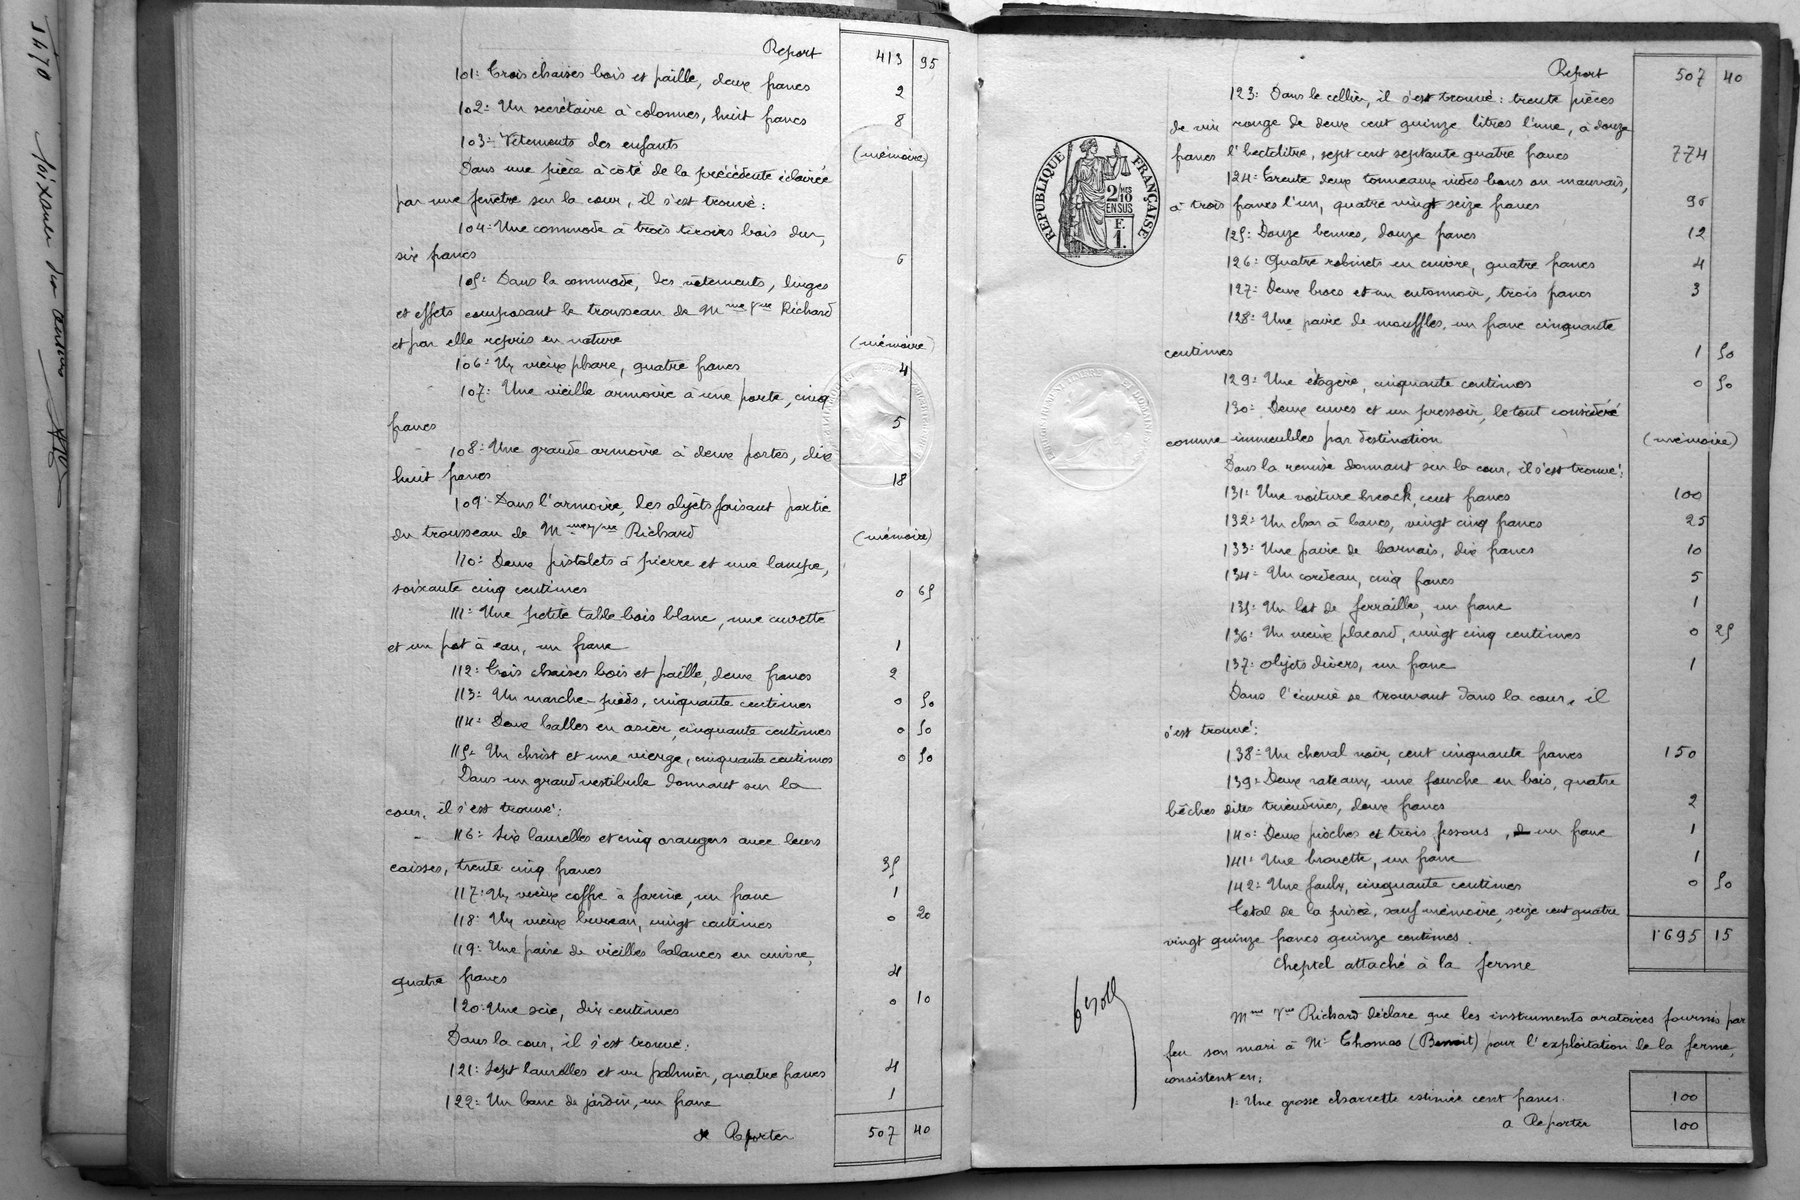 1470
Report 413 95
101: Trois chaises bois et paille, deux francs 2
102: Un secrétaire à colonnes, huit francs 8
103: Vêtements des enfants (mémoire)
Dans une pièce à côté de la précédente éclairée
par une fenêtre sur la cour, il s'est trouvé:
104: Une commode à trois tiroirs bois dur,
six francs 6
105: Dans la commode, des vêtements, linges
et effets composant le trousseau de Mme Vve Richard
et par elle repris en nature (mémoire)
106: Un vieux phare, quatre francs 4
107: Une vieille armoire à une porte, cinq
francs 5
108: Une grande armoire à deux portes, dix
huit francs 18
109: Dans l'armoire, des objets faisant partie
du trousseau de Mme Vve Richard (mémoire)
110: Deux pistolets à pierre et une lampe,
soixante cinq centimes 0 65
111: Une petite table bois blanc, une cuvette
et un pot à eau, un franc 1
112: Trois chaises bois et paille, deux francs 2
113: Un marche-pieds, cinquante centimes 0 50
114: Deux balles en osier, cinquante centimes 0 50
115: Un christ et une vierge, cinquante centimes 0 50
Dans un grand vestibule donnant sur la
cour, il s'est trouvé:
116: Six laurelles et cinq orangers avec leurs
caisses, trente cinq francs 35
117: Un vieux coffre à farine, un franc 1
118: Un vieux bureau, vingt centimes 0 20
119: Une paire de vieilles balances en cuivre,
quatre francs 4
120: Une scie, dix centimes 0 10
Dans la cour, il s'est trouvé:
121: Sept laurelles et un palmier, quatre francs 4
122: Un banc de jardin, un franc 1
Reporter 507 40
Report 507 40
123: Dans le cellier, il s'est trouvé: trente pièces
de vin rouge de deux cent quinze litres l'une, à douze
francs l'hectolitre, sept cent septante quatre francs 774
124: Trente deux tonneaux vides bons ou mauvais,
à trois francs l'un, quatre vingt seize francs 96
125: Douze bennes, douze francs 12
126: Quatre robinets en cuivre, quatre francs 4
127: Deux brocs et un entonnoir, trois francs 3
128: Une paire de mouffles, un franc cinquante
centimes 1 50
129: Une étagère, cinquante centimes 0 50
130: Deux cuves et un pressoir, le tout considéré
comme immeubles par destination (mémoire)
Dans la remise donnant sur la cour, il s'est trouvé:
131: Une voiture break, cent francs 100
132: Un char à bancs, vingt cinq francs 25
133: Une paire de harnais, dix francs 10
134: Un cordeau, cinq francs 5
135: Un lot de ferrailles, un franc 1
136: Un vieux placard, vingt cinq centimes 0 25
137: objets divers, un franc 1
Dans l'écurie se trouvant dans la cour, il
s'est trouvé:
138: Un cheval noir, cent cinquante francs 150
139: Deux rateaux, une fourche en bois, quatre
bêches dites triendines, deux francs 2
140: Deux pioches et trois fessons, un franc 1
141: Une brouette, un franc 1
142: Une faulx, cinquante centimes 0 50
Total de la prisée, sauf mémoire, seize cent quatre
vingt quinze francs quinze centimes. 1.695 15
Cheptel attaché à la ferme
Mme Vve Richard déclare que les instruments aratoires fournis par
feu son mari à Mr Thomas (Benoit) pour l'exploitation de la ferme,
consistent en:
1: Une grosse charrette estimée cent francs. 100
a Reporter 100
RÉPUBLIQUE FRANÇAISE
2/10
EN SUS
F.
1.